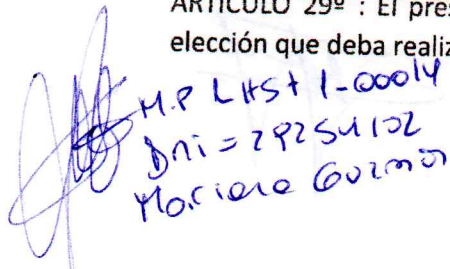 ARTÍCULO 29º : El pres
elección que deba realiz
M.P LHS+ 1-00014
Dni = 29254102
Mariana Guzmán